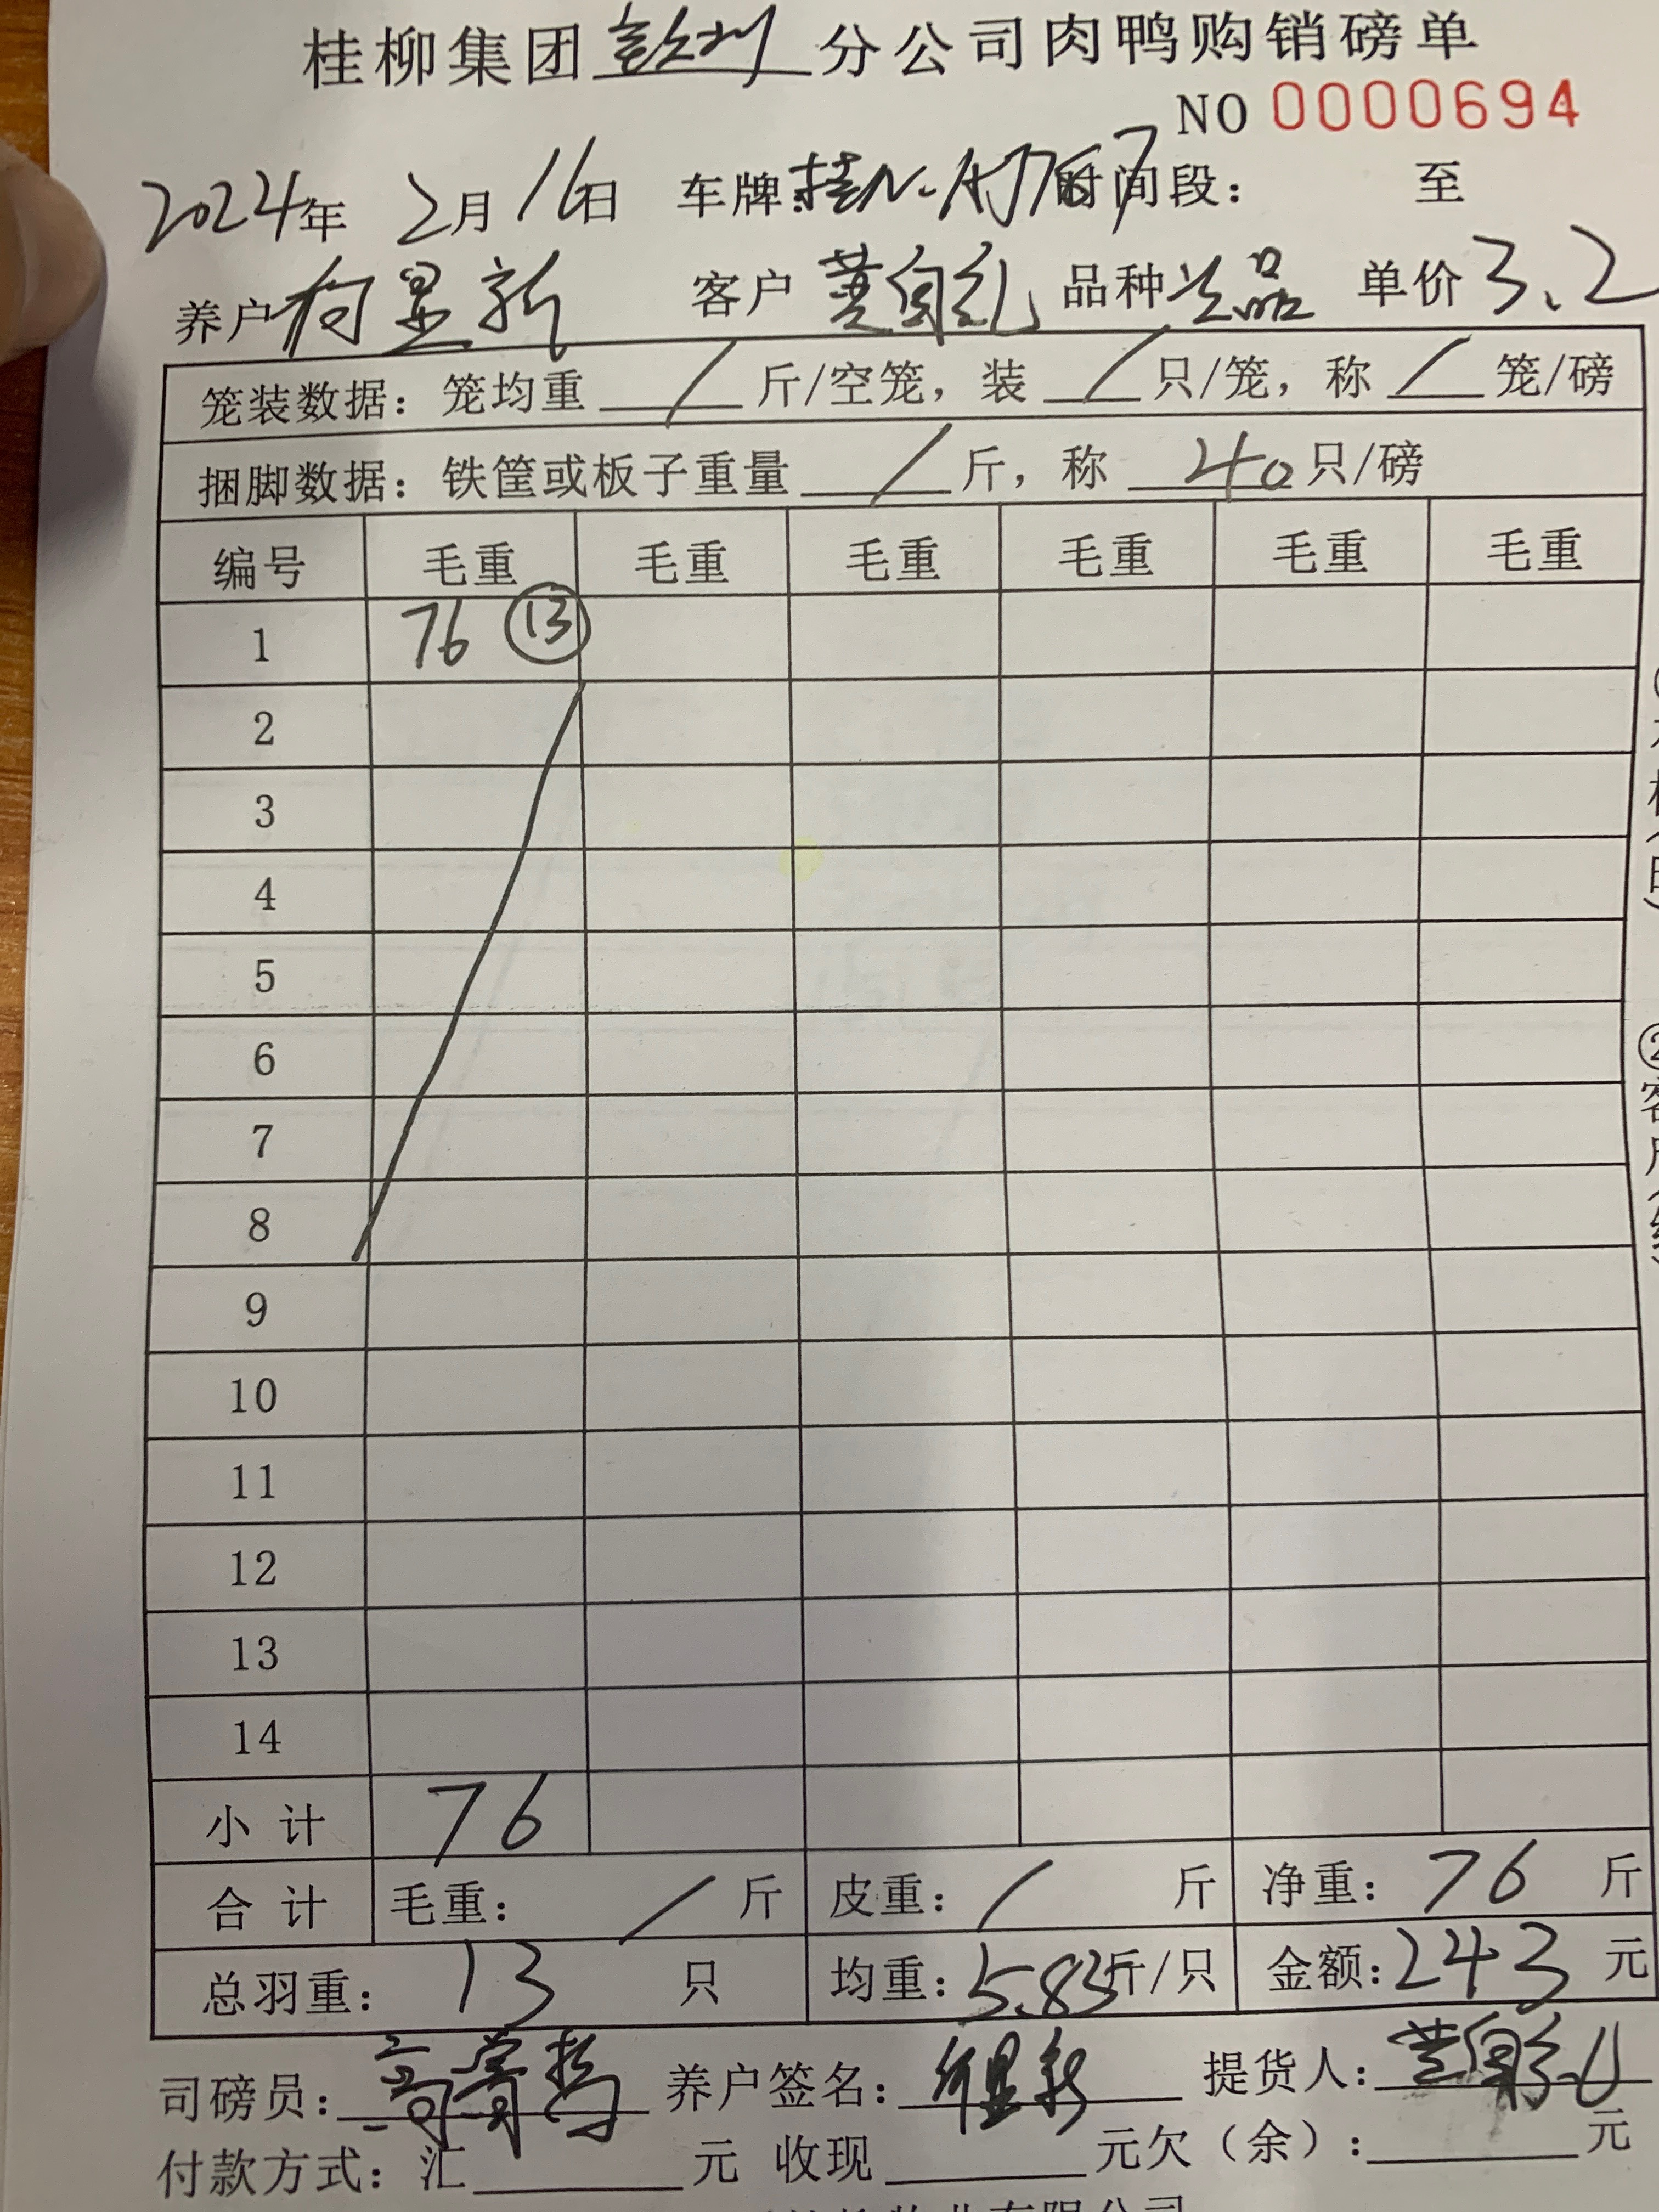 桂柳集团 分公司肉鸭购销磅单
NO 0000694
2024年 2月 16日 车牌: 桂N· 时间段: 至
养户 何显新 客户 黄 品种 次品 单价 3.2
笼装数据: 笼均重 / 斤/空笼, 装 / 只/笼, 称 / 笼/磅
捆脚数据: 铁筐或板子重量 / 斤, 称 40 只/磅
编号 毛重 毛重 毛重 毛重 毛重 毛重
1 76 ⑬
2
3
4
5
6
7
8
9
10
11
12
13
14
小计 76
合计 毛重: / 斤 皮重: / 斤 净重: 76 斤
总羽重: 13 只 均重: 5.83斤/只 金额: 243 元
司磅员: 养户签名: 何显新 提货人: 黄
付款方式: 汇 元 收现 元欠(余): 元
②客户